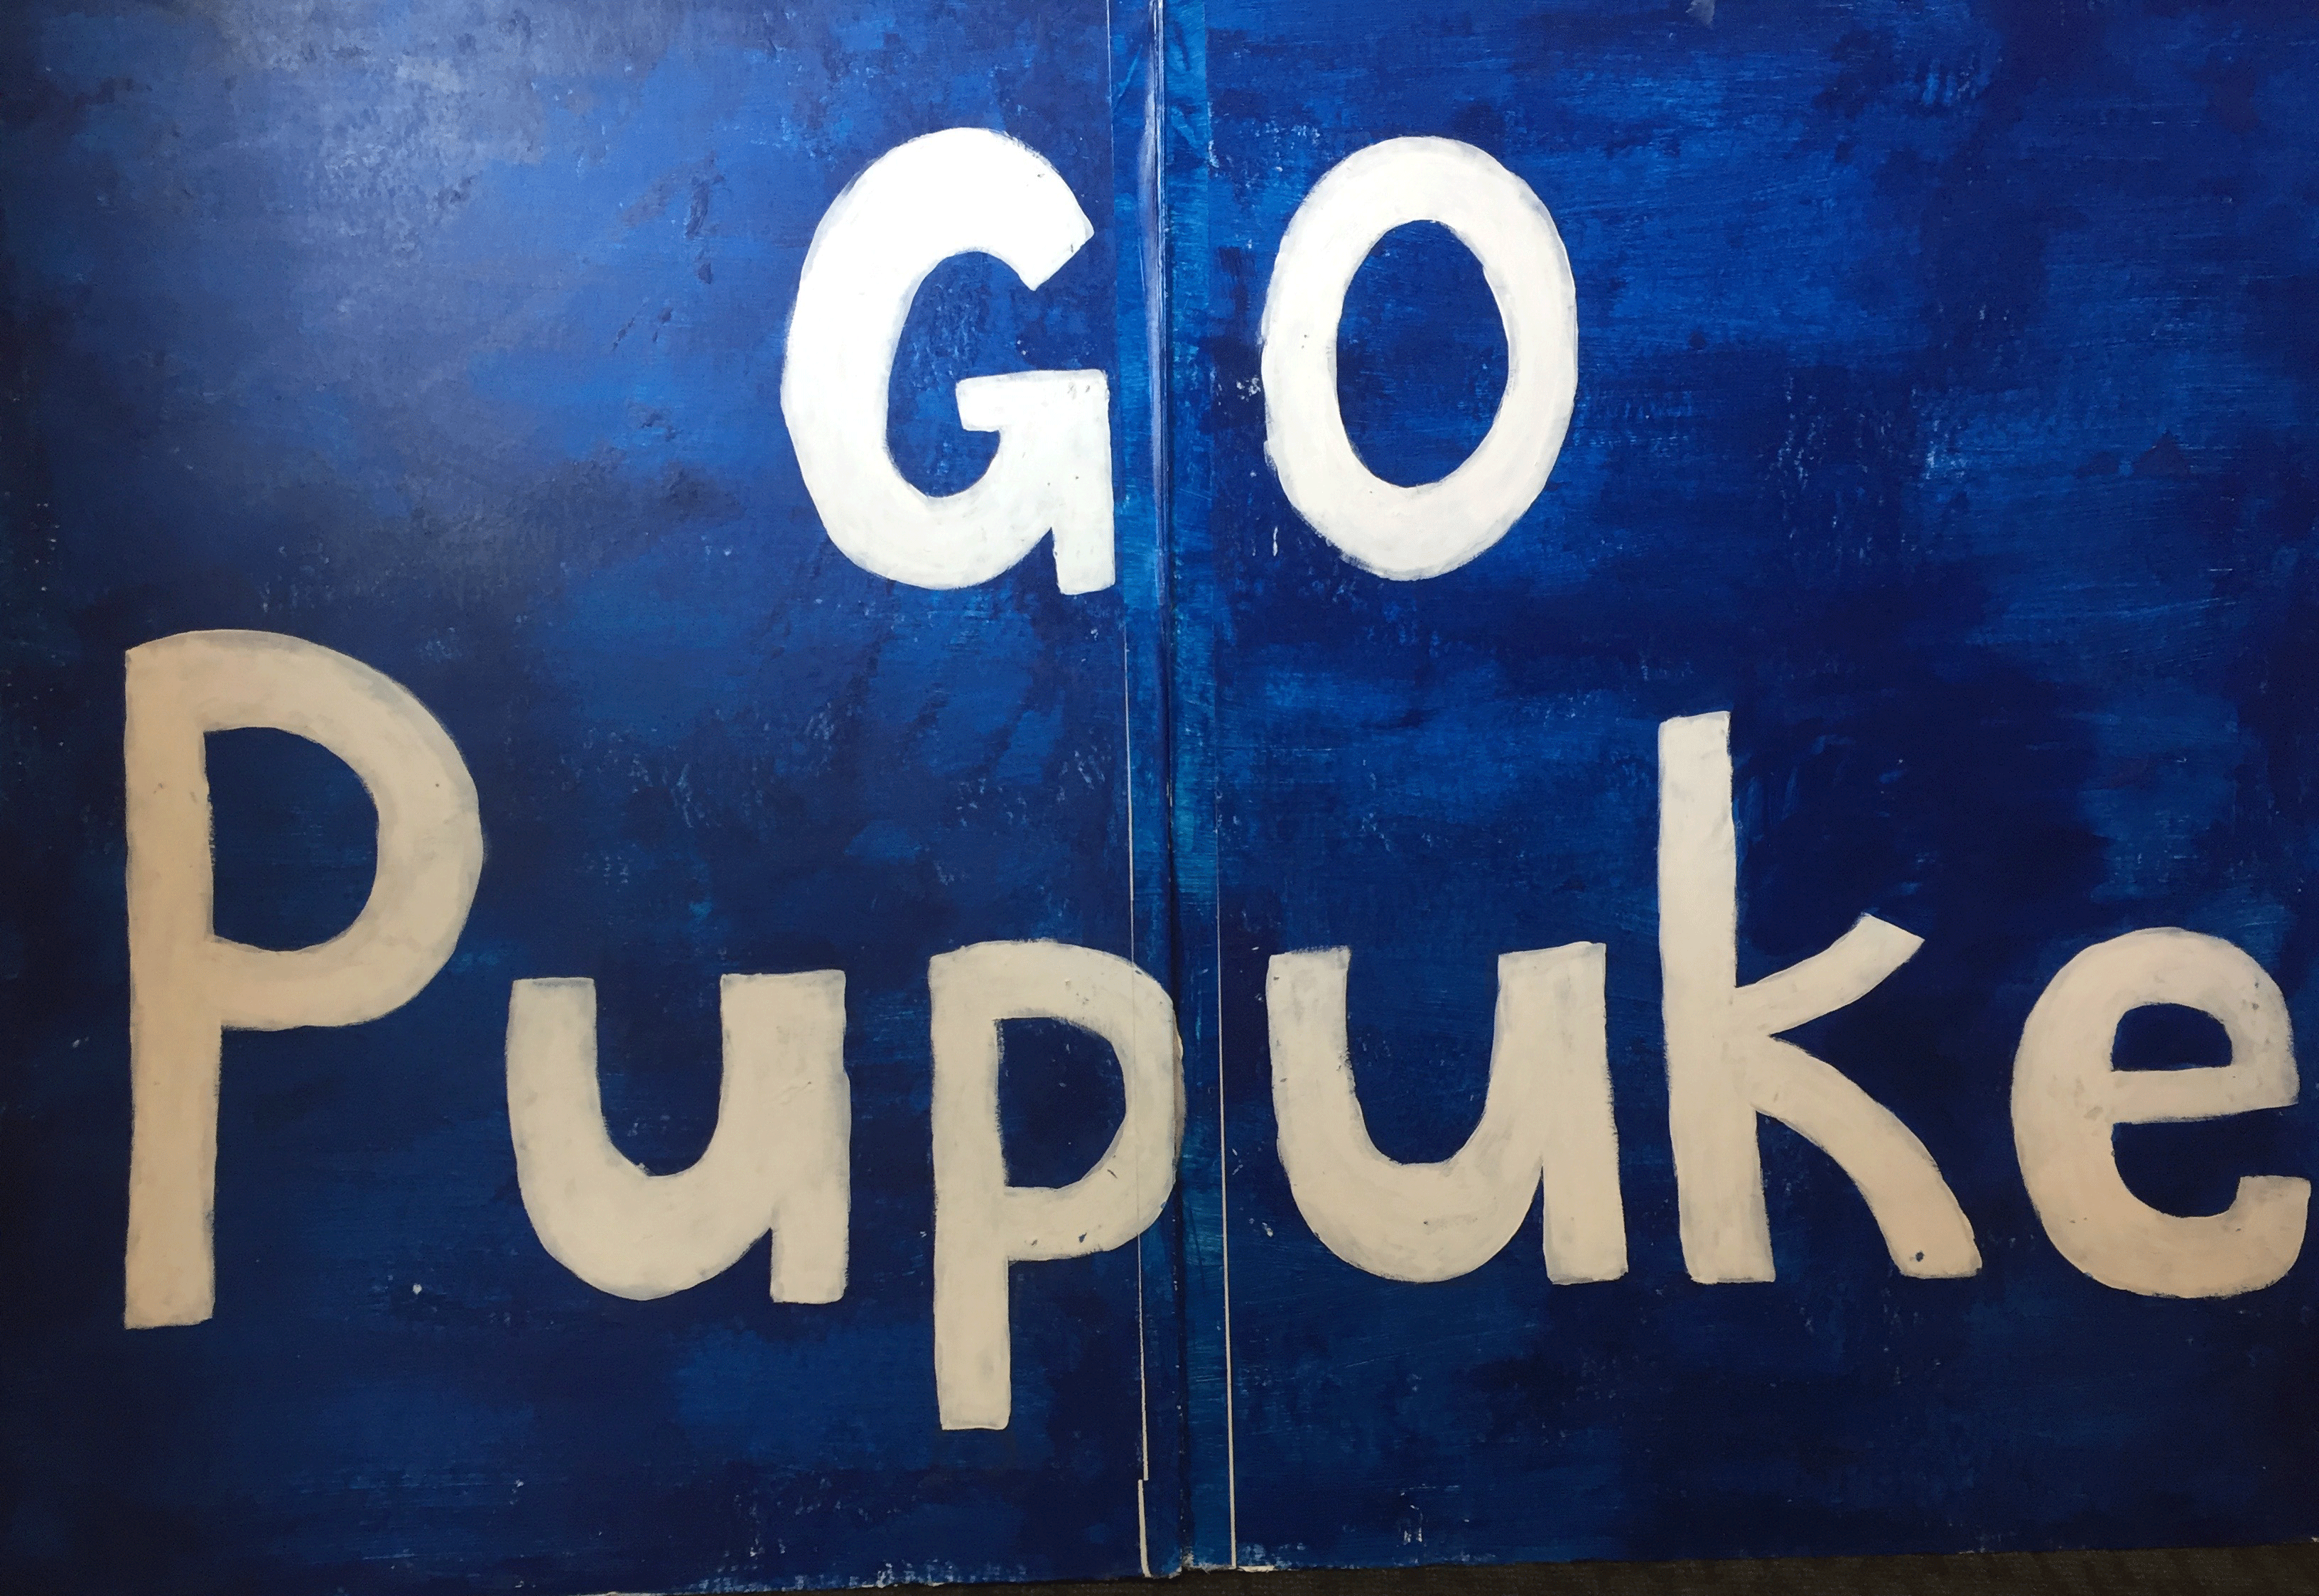 GO
Pupuke